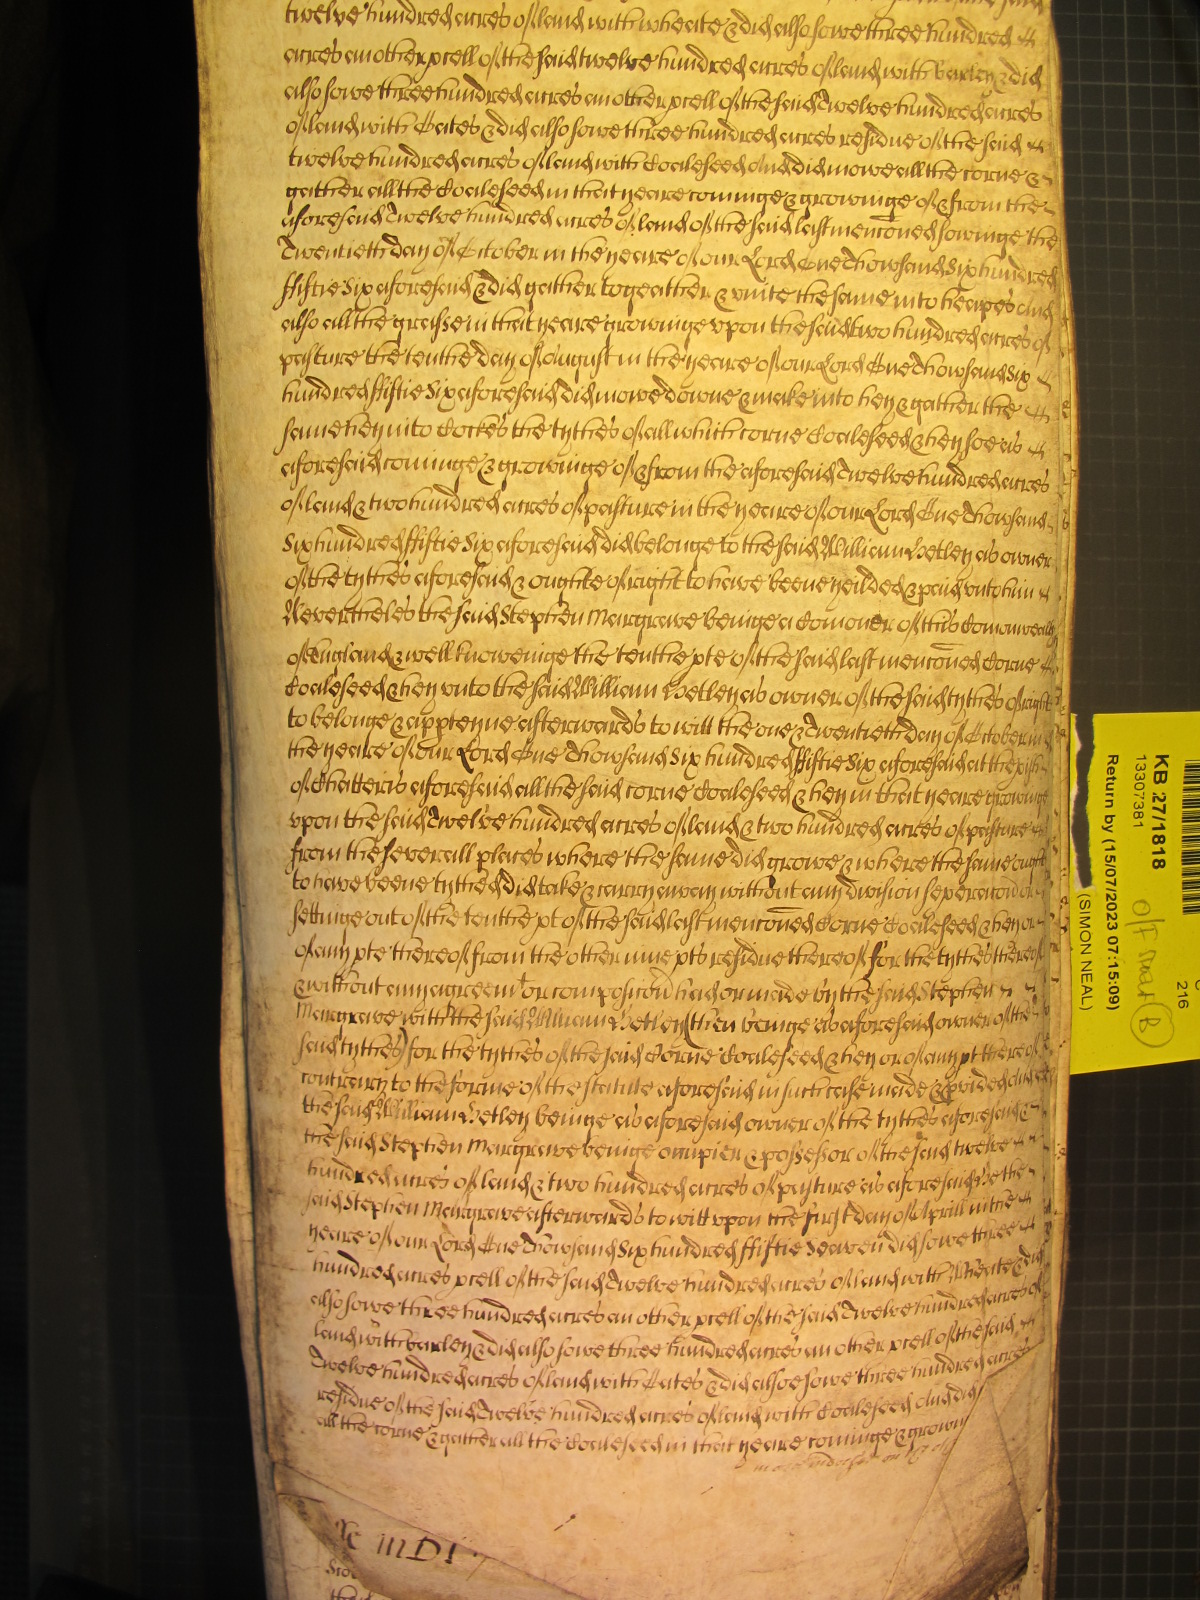 twelve hundred acres of land with wheate & did also sowe three hundred
acres another pcell of the said twelve hundred acres of land with barley & did
also sowe three hundred acres another pcell of the said Twelve hundred acres
of land with Oates & did also sowe three hundred acres residue of the said
twelve hundred acres of land with Coaleseed And did mowe all the corne &
gather all the Coaleseed in that yeare cominge & growinge of & from the
aforesaid Twelve hundred acres of land of the said last menconed sowinge the
Twentieth day of October in the yeare of our Lord One Thowsand Six hundred
ffiftie Six aforesaid & did gather togeather & unite the same into heapes And
also all the grasse in that yeare growinge upon the said two hundred acres of
pasture the tenthe day of August in the yeare of our Lord One Thowsand Six
hundred ffiftie Six aforesaid did mowe downe & make into hey & gather the
same hey into Cockes the tythes of all which corne Coaleseed & hey soe as
aforesaid cominge & growinge of & from the aforesaid Twelve hundred acres
of land & two hundred acres of pasture in the yeare of our Lord One Thowsand
Six hundred ffiftie Six aforesaid did belonge to the said William Hetley as owner
of the tythes aforesaid & oughte of right to have beene yeilded & paid unto him
Nevertheles the said Stephen Margrave beinge a Comoner of this Comonwealth
of England & well knoweinge the tenthe pte of the said last menconed Corne
Coaleseed & hey unto the said William Hetley as owner of the said tythes of right
to belonge & apperteyne afterwards to witt the one & Twentieth day of October in
the yeare of our Lord One Thowsand Six hundred ffiftie Six aforesaid at the pish
of Chatteris aforesaid all the said corne Coaleseed & hey in that yeare growinge
upon the said Twelve hundred acres of land & two hundred acres of pasture
from the severall places where the same did growe & where the same ought
to have beene tythed did take & carry away without any division seperacon or
settinge out of the tenthe pt of the said last menconed Corne Coaleseed & hey or
of any pte thereof from the other nine pts residue thereof for the tythes thereof
& without any agreemt or composicon had or made by the said Stephen
Margrave with the said William Hetley (then beinge as aforesaid owner of the
said tythes) for the tythes of the said Corne Coaleseed & hey or of any pt thereof
contrary to the forme of the statute aforesaid in such case made & pvided And
the said William Hetley beinge as aforesaid owner of the tythes aforesaid &
the said Stephen Margrave beinge occupier & possessor of the said twelve
hundred acres of land & two hundred acres of pasture as aforesaid He the
said Stephen Margrave afterwards to witt upon the first day of Aprill in the
yeare of our Lord One Thowsand Six hundred ffiftie Seaven did sowe three
hundred acres pcell of the said Twelve hundred acres of land with Wheate & did
also sowe three hundred acres another pcell of the said Twelve hundred acres of
land with barley & did also sowe three hundred acres another pcell of the said
Twelve hundred acres of land with Oates & did alsoe sowe three hundred acres
residue of the said Twelve hundred acres of land with Coaleseed And did
all the corne & gather all the Coaleseed in that yeare cominge & grown
KB 27/1818
13307381
Return by (15/07/2023 07:15:09)
(SIMON NEAL)
216